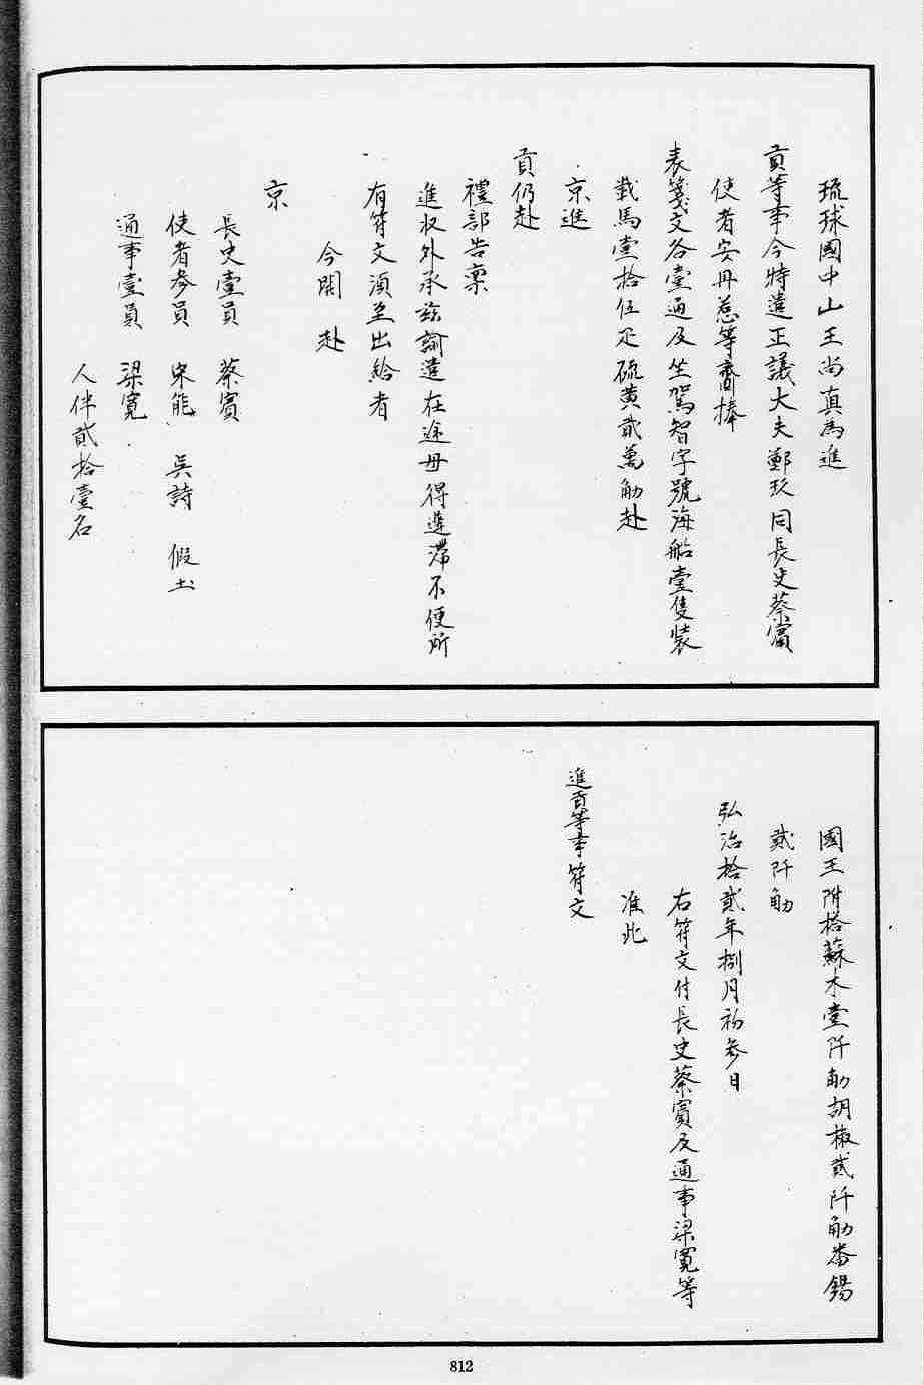 琉球國中山王尚真為進
貢等事今特遣正議大夫鄭玖同長史蔡賓
使者安丹惹等齎捧
表箋文各壹通及坐駕智字號海船壹隻裝
載馬壹拾伍疋硫黄貳萬觔赴
京進
貢仍赴
禮部告禀
進収外承茲諭遣在途毋得遲滯不便所
有符文湏至出給者
今開赴
京
長史壹員 蔡賓
使者參員 宋能 吳詩 假土
通事壹員 梁寬
人伴貳拾壹名
國王附搭蘇木壹阡觔胡椒貳阡觔番錫
貳阡觔
弘治拾貳年捌月初參日
右符文付長史蔡賓及通事梁寬等
准此
進貢等事符文
812